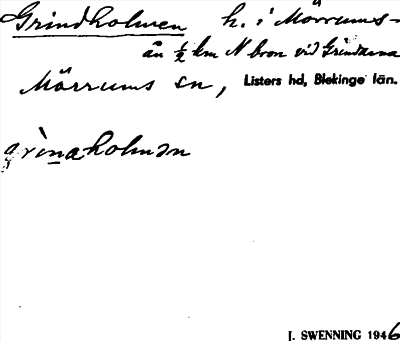 Grindholmen h. i Mörrums-
ån ½ km N bron vid Grindarna
Mörrums sn, Listers hd, Blekinge län.
grìnaholmən
J. SWENNING 1946